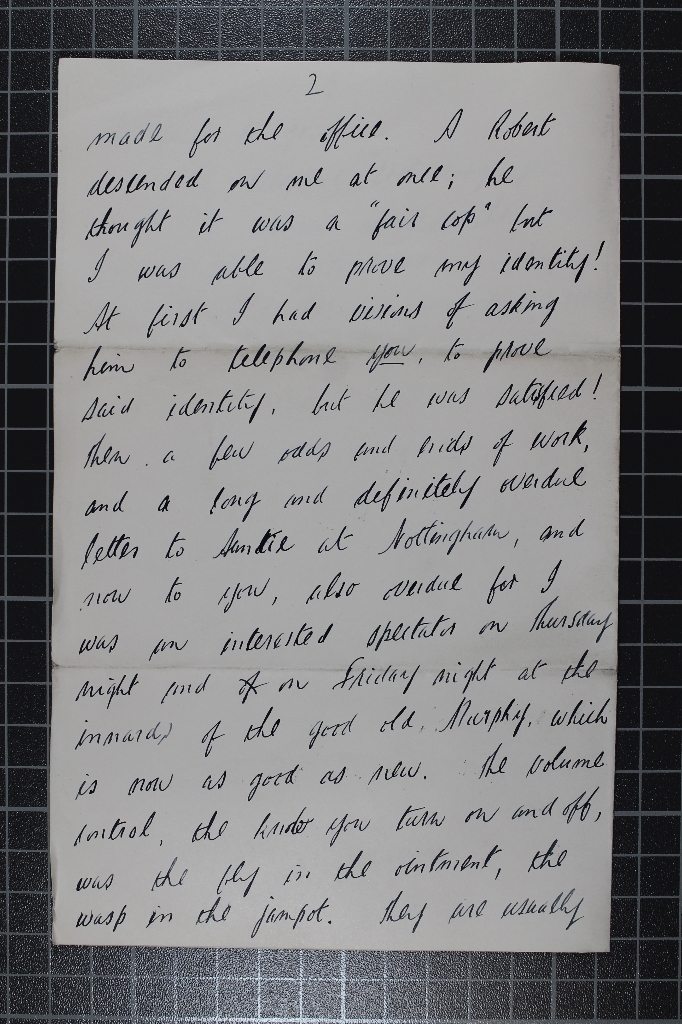 2
made for the office. A Robert
descended on me at once; he
thought it was a "fair cop" but
I was able to prove my identity!
At first I had visions of asking
him to telephone you, to prove
said identity, but he was satisfied!
Then a few odds and ends of work,
and a long and definitely overdue
letter to Auntie at Nottingham, and
now to you, also overdue for I
was an interested spectator on Thursday
night and on Friday night at the
innards of the good old Murphy, which
is now as good as new. The volume
control, the knob you turn on and off,
was the fly in the ointment, the
wasp in the jampot. They are usually